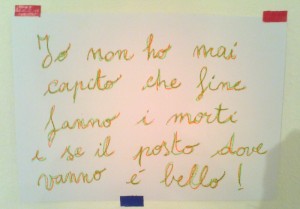 Io non ho mai
capito che fine
fanno i morti
e se il posto dove
vanno é bello!